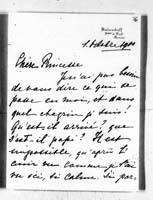 1 Octobre 1911
Chère Princesse
Je n'ai pas besoin
de vous dire ce qui se
passe en moi, et dans
quel chagrin je suis!
Qu'est-il arrivé? que
s'est-il passé? Il est
impossible qu'après l'
avoir vu comme je l'ai
vu ici, si calme,